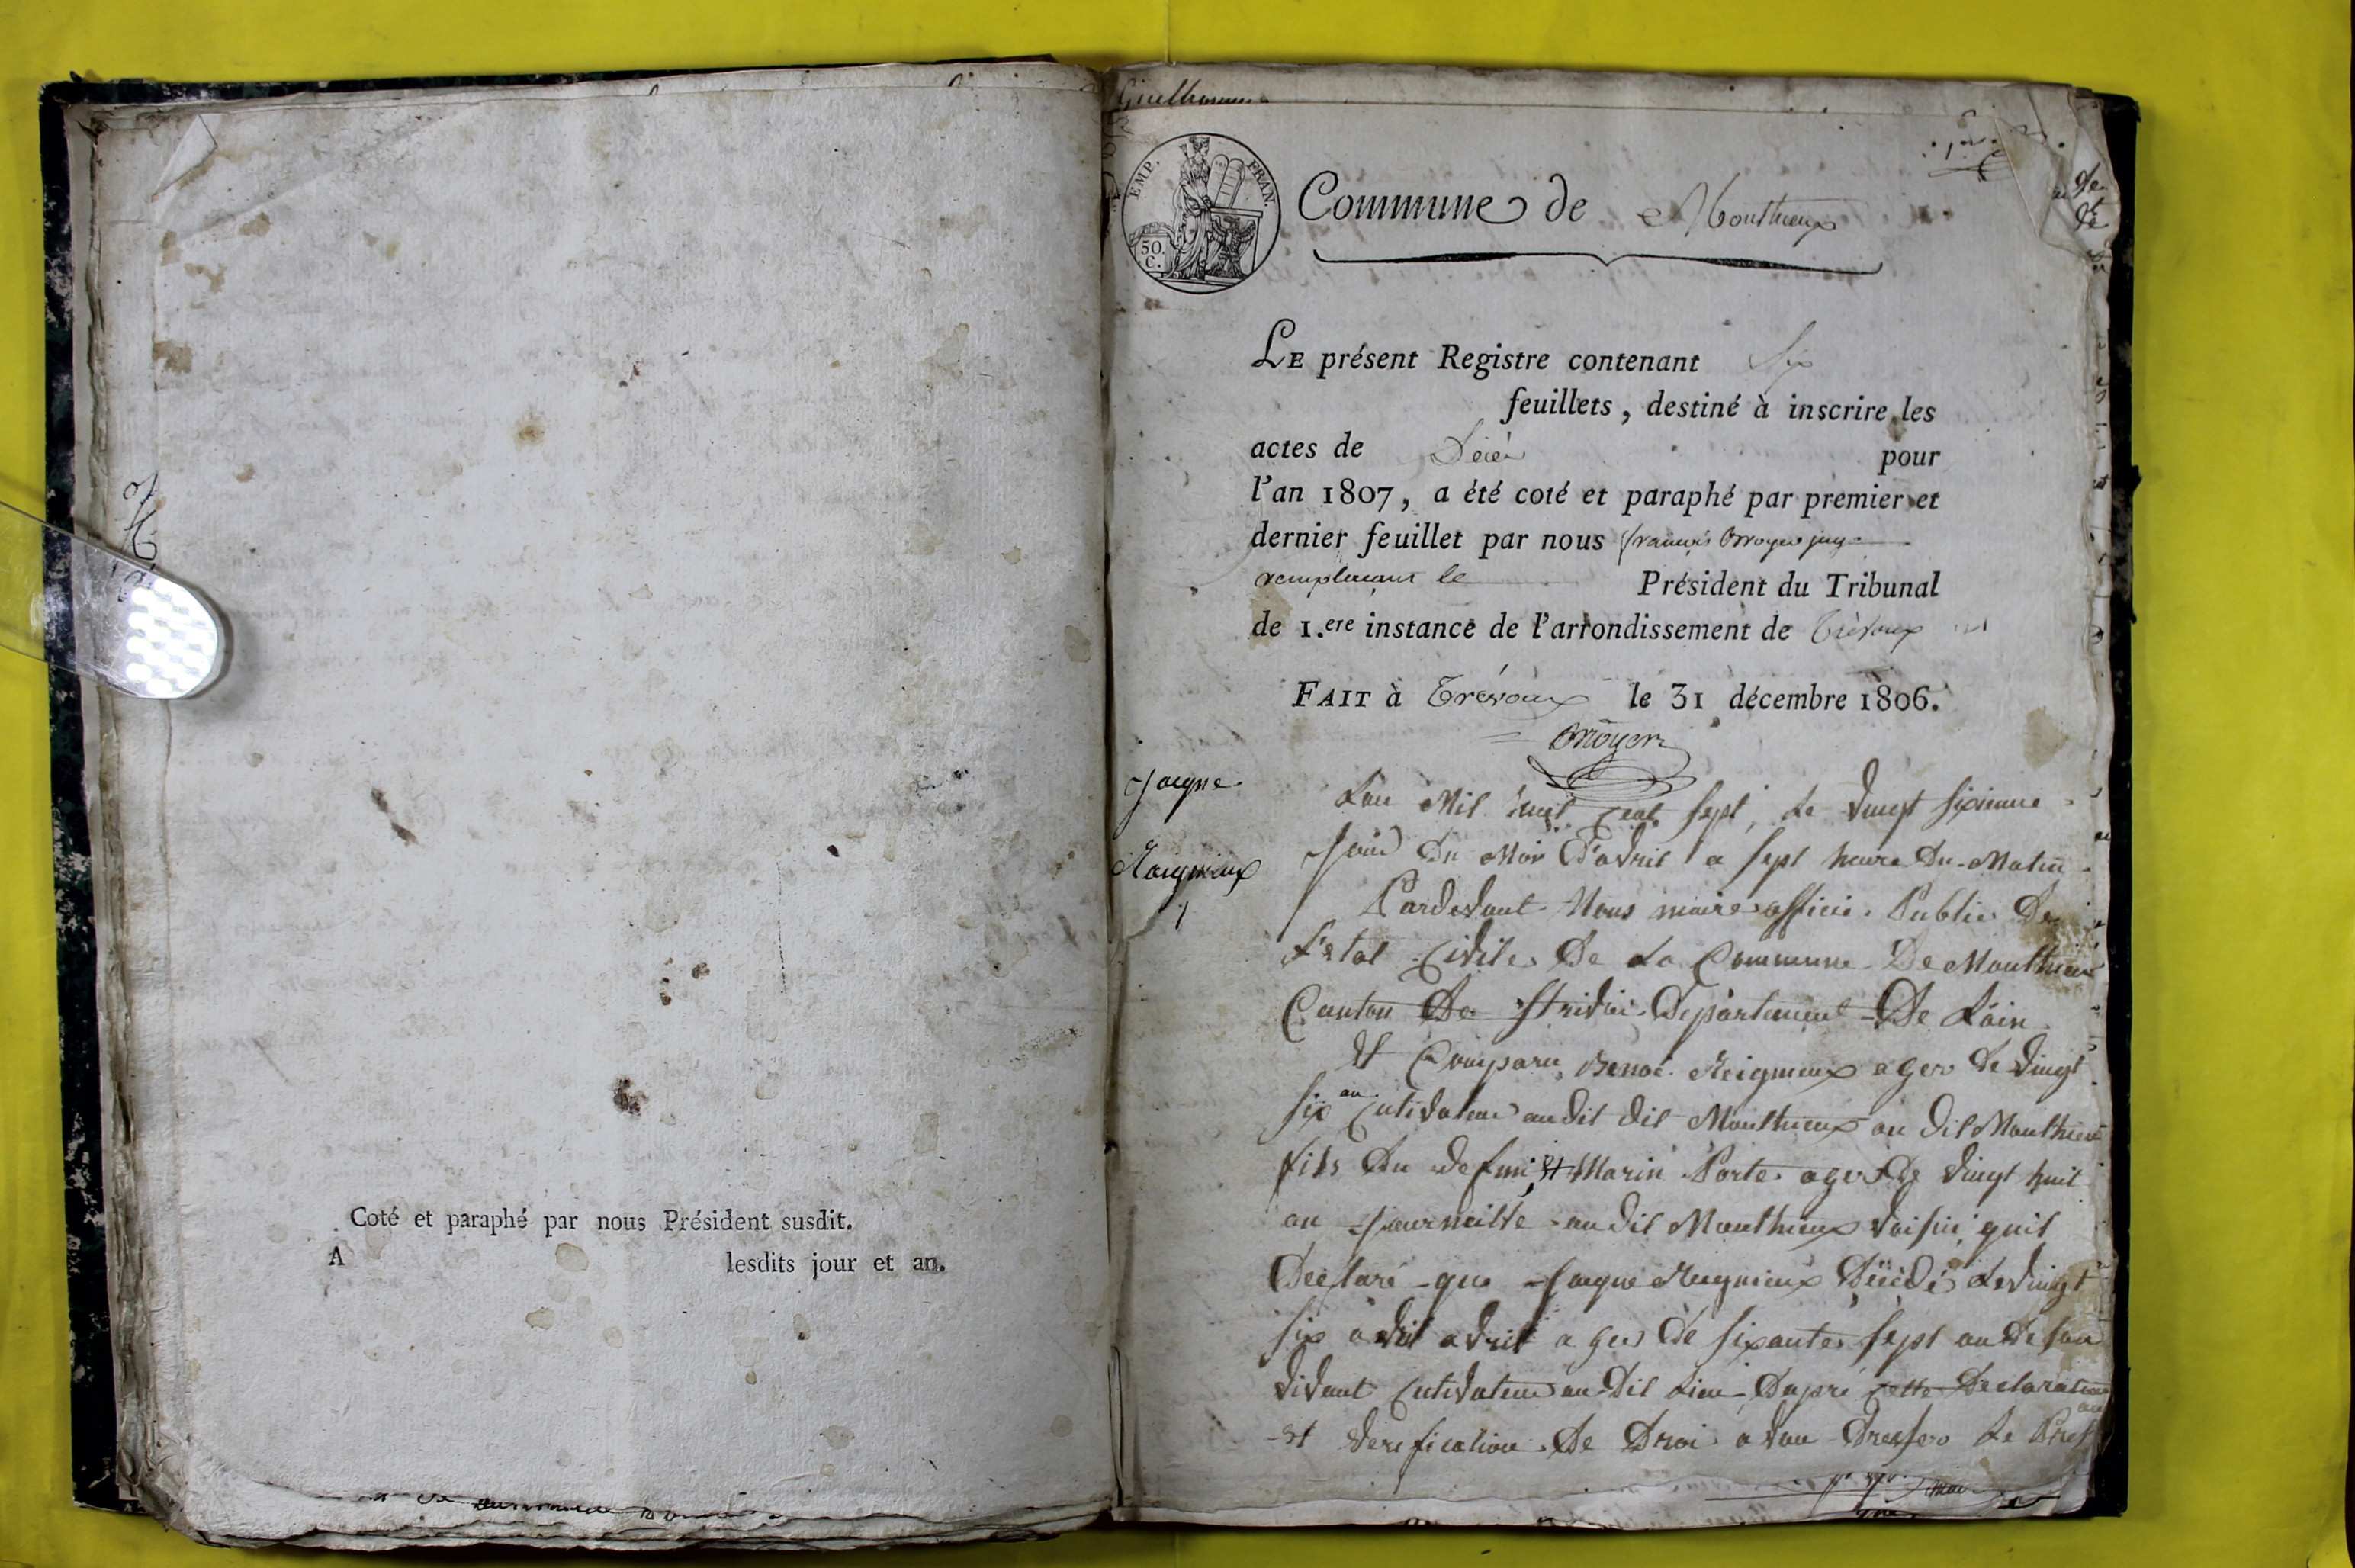 Coté et paraphé par nous Président susdit.
A lesdits jour et an.
EMP. FRAN.
50 C.
Commune de Monthieux
LE présent Registre contenant Six
feuillets, destiné à inscrire les
actes de Décè pour
l'an 1807, a été coté et paraphé par premier et
dernier feuillet par nous françois juge
remplaçant le Président du Tribunal
de 1.ere instance de l'arrondissement de Trévoux
FAIT à Trévoux le 31 décembre 1806.
Jaque
Lan Mil huit cent sept, Le vingt sixieme
jour Du Moi D'avril a sept heure Du Matin
Pardevant Nous maire officié Public De
L'etat Civile De La Commune De Monthieux
Canton De Département De Lain
Et Comparu Benoi Reignieux ager de vingt
six an cutivateur audit dit Monthieux au dit Monthieux
fils Du defun, et Marin Porte ager De vingt huit
an au dit Monthieux voisin, quil
Declaré que Jaque Reignieux Décédé Le vingt
six avril ager De sixante sept an De son
vivant cutivateur au Dit Lieu Dapré cette Declaration
Et verification De Droi avon Dresser Le